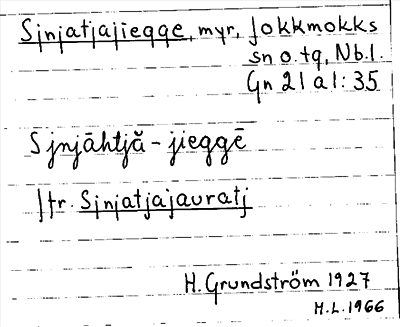 Sjnjatjajiegge, myr, Jokkmokks
sn o. tg, Nb.l.
Gn 21 a l: 35
Sjnjāhtjă - jieggē
Jfr. Sjnjatjajauratj
H. Grundström 1927
H.L. 1966